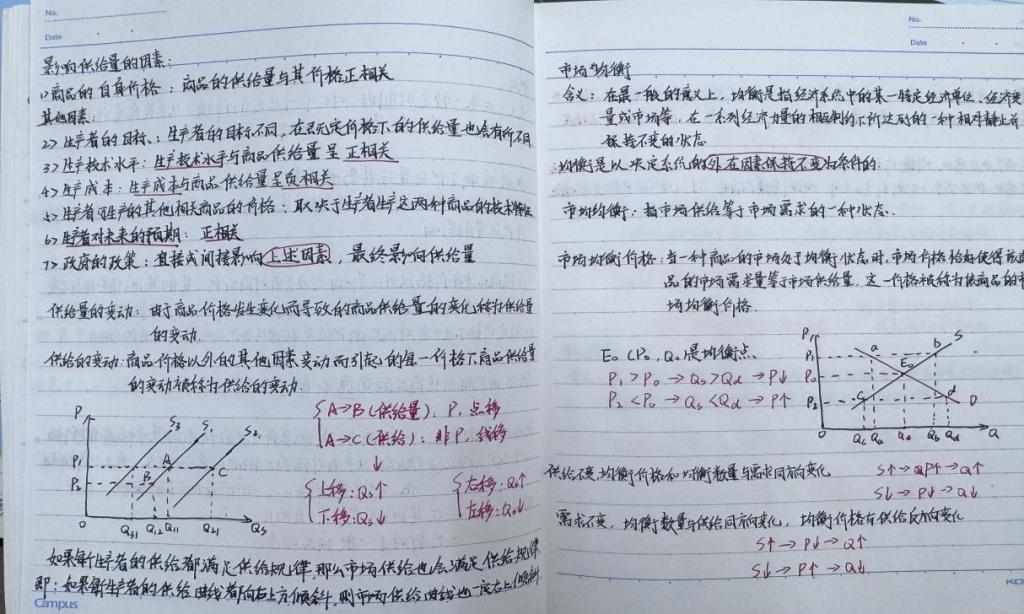 No.
Date
影响供给量的因素：
1>商品的自身价格：商品的供给量与其价格正相关
其他因素：
2>生产者的目标：生产者的目标不同，在已无定价格下的供给量也会有所不同
3>生产技术水平：生产技术水平与商品供给量呈正相关
4>生产成本：生产成本与商品供给量呈负相关
5>生产者可生产的其他相关商品的价格：取决于生产者生产这两种商品的技术
6>生产者对未来的预期：正相关
7>政府的政策：直接或间接影响上述因素，最终影响供给量
供给量的变动：由于商品价格发生变化而导致的商品供给量的变化称为供给量
的变动.
供给的变动：商品价格以外的其他因素变动而引起的每一价格下商品供给量
的变动被称为供给的变动.
P
S3
S1
S2
P1
A
C
P2
B
O
Q31
Q12
Q11
Q21
Qs
A→B（供给量）：P，点移
A→C（供给）：非P，线移
↓
上移：Qs↑
下移：Qs↓
右移：Qs↑
左移：Qs↓
如果每生产者的供给都满足供给规律，那么市场供给也会满足供给规律
即：如果每生产者的供给曲线都向右上方倾斜，则市场供给曲线也一定右上倾斜
Campus
No.
Date
市场均衡
含义：在最一般的意义上，均衡是指经济系统中的某一特定经济单位、经济变
量或市场等，在一系列经济力量的相互制约下所达到的一种相对静止并
保持不变的状态
均衡是以决定系统的外在因素保持不变为条件的.
市场均衡：指市场供给等于市场需求的一种状态.
市场均衡价格：当一种商品的市场处于均衡状态时，市场价格恰好使得该商
品的市场需求量等于市场供给量，这一价格被称为该商品的市
场均衡价格.
E0（P0，Q0）是均衡点、
P1>P0→Qs>Qd→P↓
P2<P0→Qs<Qd→P↑
P
P1
a
b
S
P0
E0
P2
c
d
D
O
Qc
Qa
Q0
Qb
Qd
Q
供给不变，均衡价格和均衡数量与需求同向变化
P↑→Q↑
S↓→P↓→Q↓
需求不变，均衡数量与供给同向变化，均衡价格与供给反向变化
S↑→P↓→Q↑
S↓→P↑→Q↓